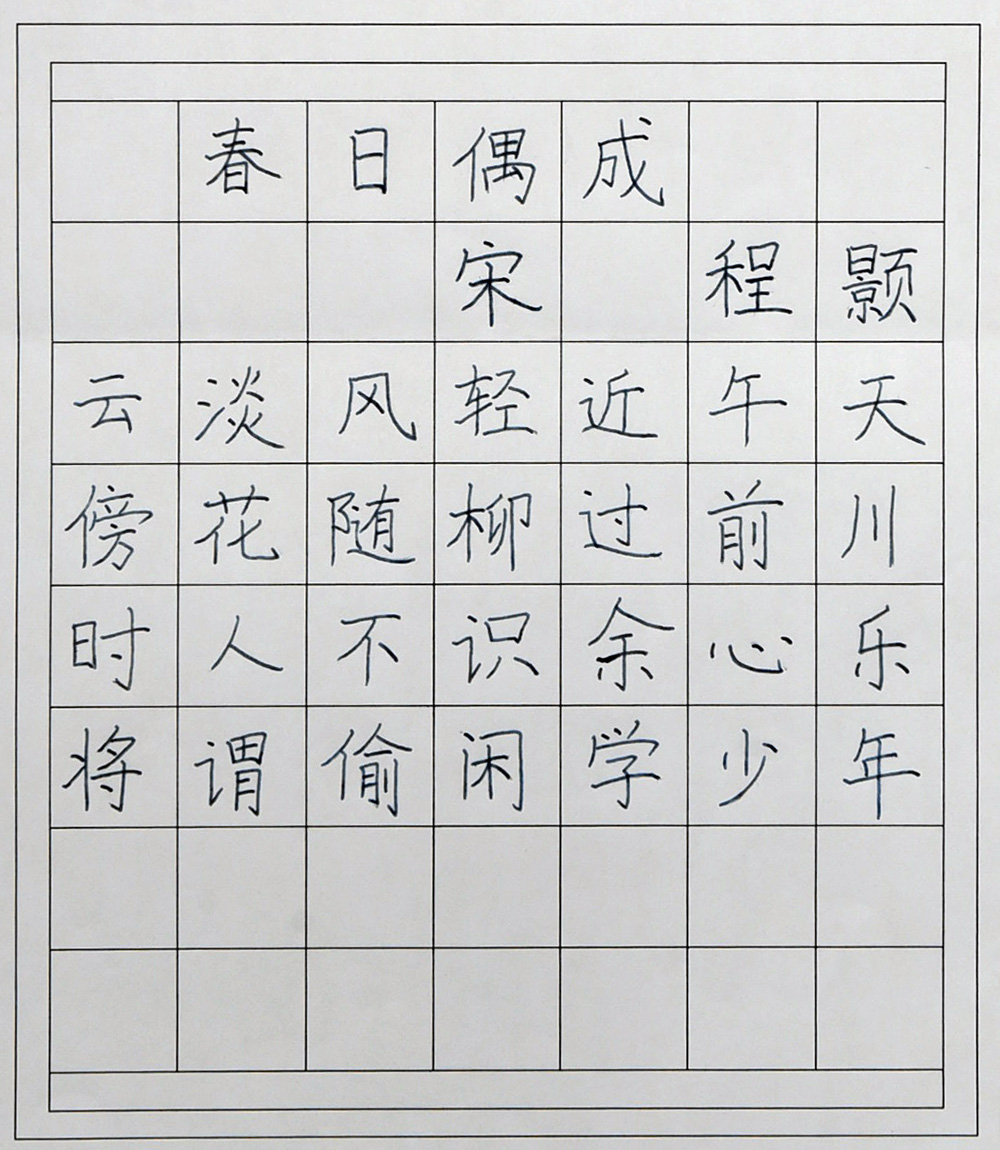 春日偶成
宋 程颢
云淡风轻近午天
傍花随柳过前川
时人不识余心乐
将谓偷闲学少年